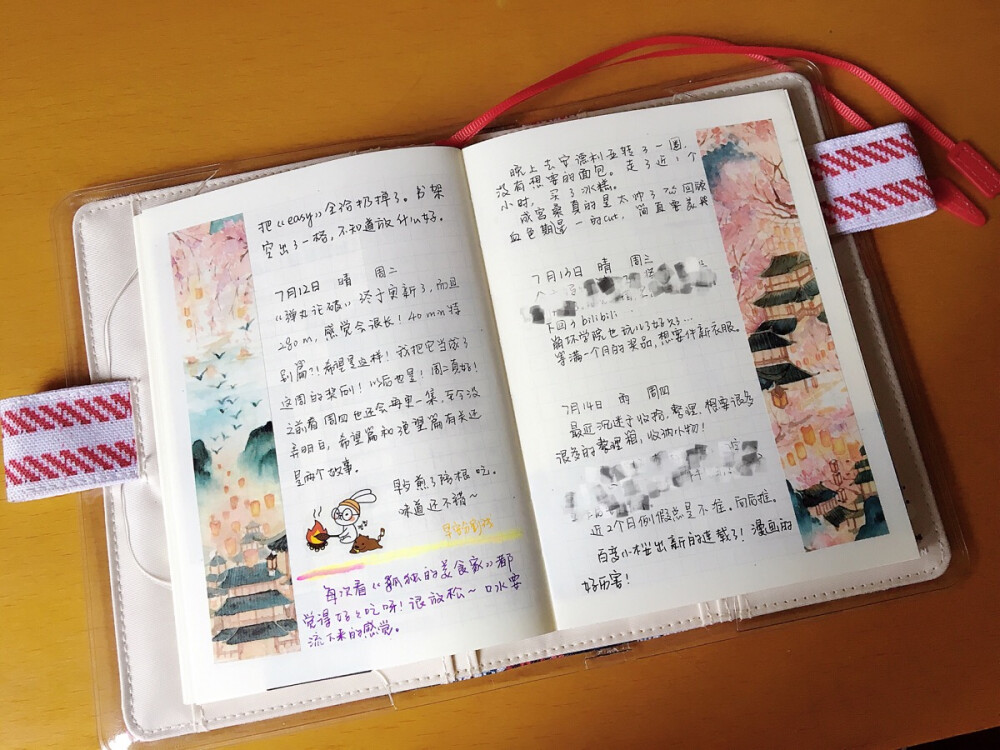 把《easy》全给扔掉了。书架
空出了一格,不知道放什么好。
7月12日 晴 周二
《弹丸论破》终于更新了,而且
280m,感觉会很长!40min特
别篇?!希望是这样!我把它当成了
这周的奖励!以后也是!周二真好!
之前看周四也还会再更一集,至今没
弄明白,希望篇和绝望篇有关还
是两个故事。
早上煎了培根吃。
味道还不错~
每次看《孤独的美食家》都
觉得好好吃呀!很放松~口水要
流下来的感觉。
晚上去安德利亚转了一圈,
没有想要的面包。走了近1个
小时,买了冰糕。
成宫桑真的是太帅了
血色期星一的cut,简直要
7月13日 晴 周三
下回个bilibili
崩坏学院也玩儿了好久…
等满一个月的奖品,想要件新衣服。
7月14日 雨 周四
最近沉迷于收拾,整理,想要很多
很多的整理箱,收纳小物!
近2个月例假总是不准。向后推。
百变小樱出新的连载了!漫画的
好厉害!